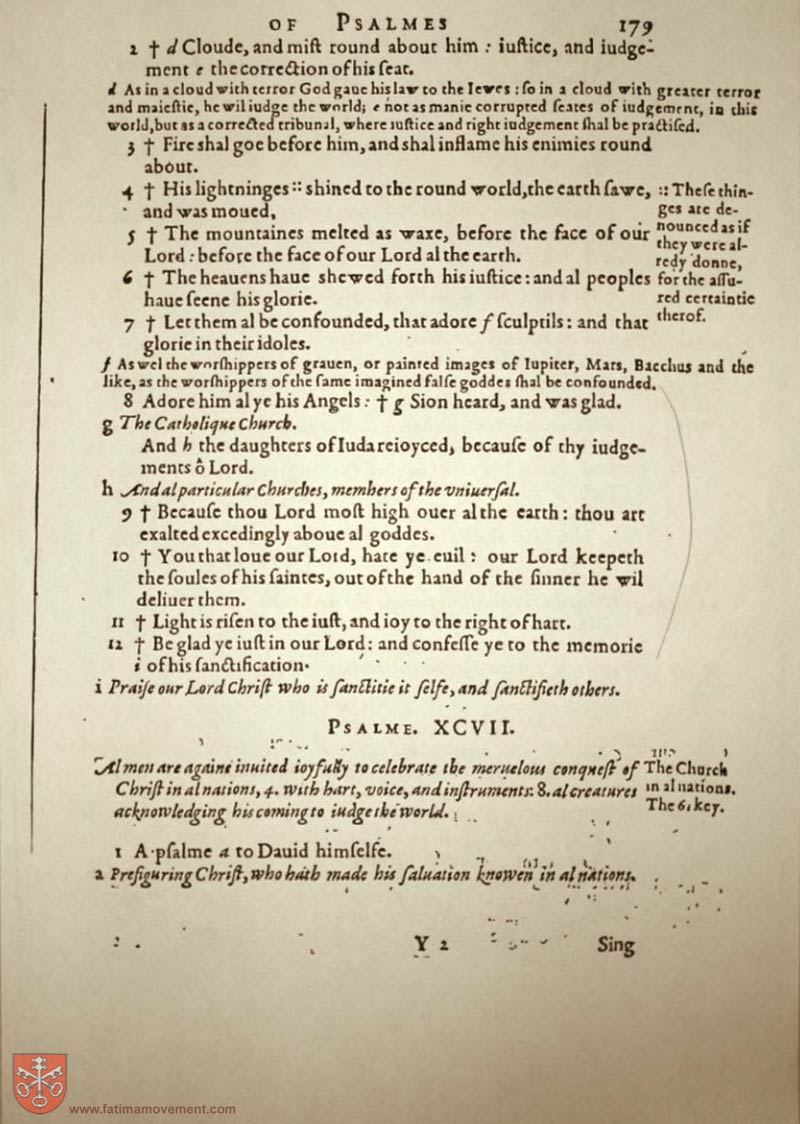 OF PSALMES 179
2 † d Cloude, and miſt round about him : iuſtice, and iudge-
ment e the correction of his ſeat.
d As in a cloud with terror God gaue his law to the Iewes : ſo in a cloud with greater terror
and maieſtie, he wil iudge the world; e not as manie corrupted ſeates of iudgement, in this
world, but as a corrected tribunal, where iuſtice and right iudgement ſhal be practiſed.
3 † Fire shal goe before him, and shal inflame his enimies round
about.
4 † His lightninges :: shined to the round world, the earth ſawe,
and was moued,
:: Theſe thin-
ges are de-
nounced as if
they were al-
redy donne,
for the aſſu-
red certaintie
therof.
5 † The mountaines melted as waxe, before the face of our
Lord : before the face of our Lord al the earth.
6 † The heauens haue shewed forth his iuſtice : and al peoples
haue ſeene his glorie.
7 † Let them al be confounded, that adore f ſculptils : and that
glorie in their idoles.
f As wel the worſhippers of grauen, or painted images of Iupiter, Mars, Bacchus and the
like, as the worſhippers of the ſame imagined falſe goddes ſhal be confounded.
8 Adore him al ye his Angels : † g Sion heard, and was glad.
g The Catholique Church.
And h the daughters of Iuda reioyced, becauſe of thy iudge-
ments ô Lord.
h And al particular Churches, members of the vniuerſal.
9 † Becauſe thou Lord moſt high ouer al the earth : thou art
exalted excedingly aboue al goddes.
10 † You that loue our Lord, hate ye euil : our Lord keepeth
the ſoules of his ſaintes, out of the hand of the ſinner he wil
deliuer them.
11 † Light is riſen to the iuſt, and ioy to the right of hart.
12 † Be glad ye iuſt in our Lord : and confeſſe ye to the memorie
i of his ſanctification.
i Praiſe our Lord Chriſt who is ſanctitie it ſelfe, and ſanctifieth others.
PSALME. XCVII.
Al men are againe inuited ioyfully to celebrate the meruelous conqueſt of
Chriſt in al nations, 4. with hart, voice, and inſtruments. 8. al creatures
acknowledging his coming to iudge the world.
The Church
in al nations.
The 6. key.
1 A pſalme a to Dauid himſelfe.
a Prefiguring Chriſt, who hath made his ſaluation knowen in al nations.
Y 2 Sing
www.fatimamovement.com